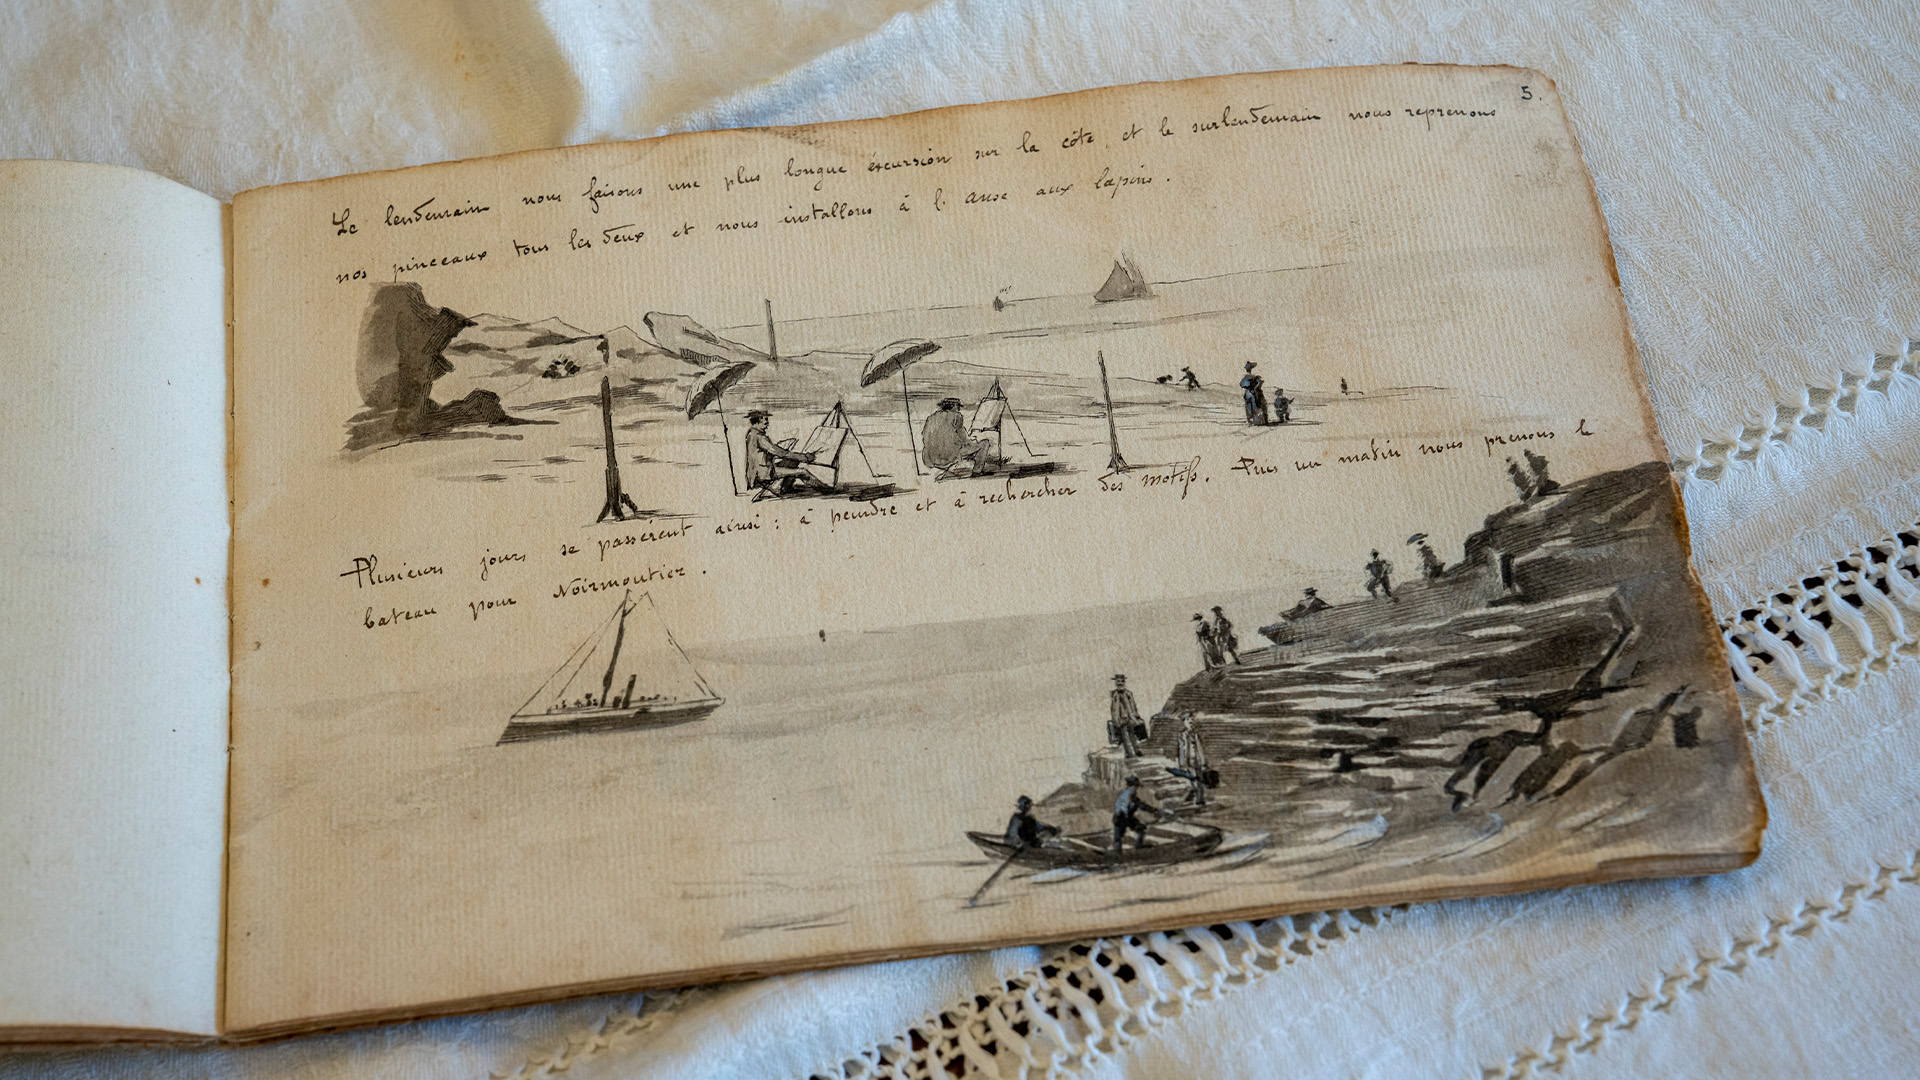 5.
Le lendemain nous faisons une plus longue éxcursion sur la côte, et le surlendemain nous reprenons
nos pinceaux tous les deux et nous installons à l'anse aux lapins.
Plusieurs jours se passèrent ainsi : à peindre et à rechercher des motifs. Puis un matin nous prenons le
bateau pour Noirmoutier.